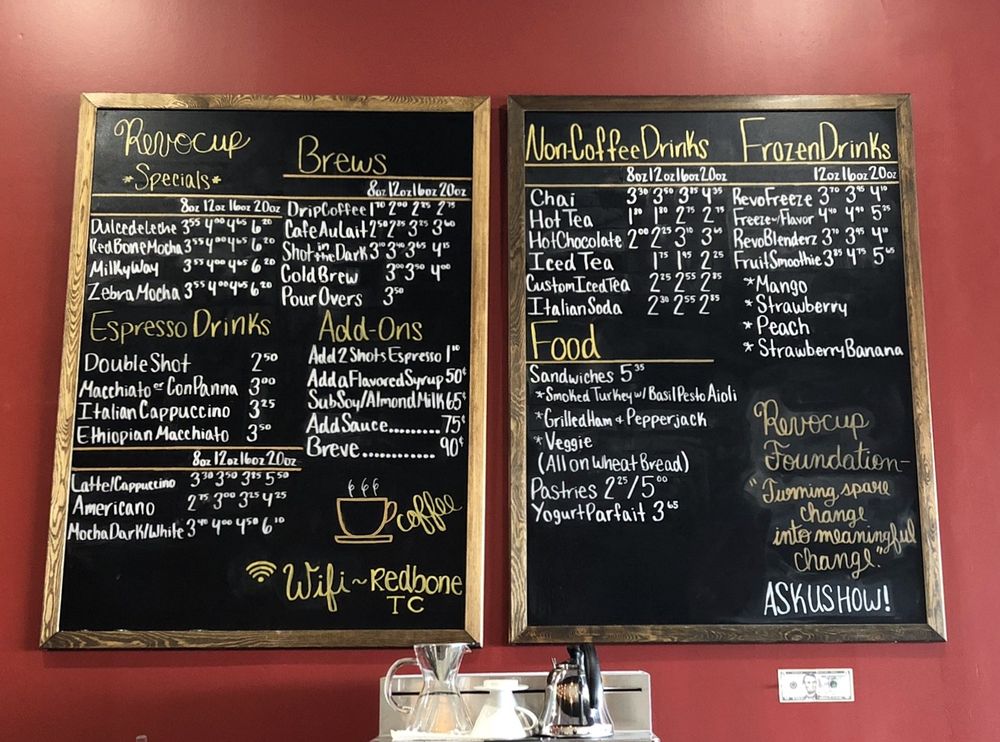 Revocup
*Specials*
8oz 12oz 16oz 20oz
Dulce de Leche 3.55 4.00 4.65 6.20
Red Bone Mocha 3.55 4.00 4.65 6.20
Milky Way 3.55 4.00 4.65 6.20
Zebra Mocha 3.55 4.00 4.65 6.20
Espresso Drinks
Double Shot 2.50
Macchiato or Con Panna 3.00
Italian Cappuccino 3.25
Ethiopian Macchiato 3.50
8oz 12oz 16oz 20oz
Latte/Cappuccino 3.30 3.50 3.85 5.50
Americano 2.75 3.00 3.25 4.25
Mocha Dark/White 3.40 4.00 4.50 6.10
Brews
8oz 12oz 16oz 20oz
Drip Coffee 1.70 2.00 2.25 2.75
Cafe Au Lait 2.50 2.75 3.25 3.60
Shot in the Dark 3.10 3.40 3.65 4.15
Cold Brew 3.00 3.50 4.00
Pour Overs 3.50
Add-Ons
Add 2 Shots Espresso 1.10
Add a Flavored Syrup 50¢
Sub Soy/Almond Milk 65¢
Add Sauce.......... 75¢
Breve............ 90¢
coffee
Wifi ~ Redbone
TC
Non-Coffee Drinks
8oz 12oz 16oz 20oz
Chai 3.30 3.50 3.85 4.35
Hot Tea 1.80 1.80 2.75 2.75
Hot Chocolate 2.00 2.25 3.10 3.65
Iced Tea 1.75 1.95 2.25
Custom Iced Tea 2.25 2.55 2.85
Italian Soda 2.30 2.55 2.85
Food
Sandwiches 5.35
*Smoked Turkey w/ Basil Pesto Aioli
*Grilled Ham & Pepperjack
*Veggie
(All on Wheat Bread)
Pastries 2.25/5.00
Yogurt Parfait 3.65
Frozen Drinks
12oz 16oz 20oz
RevoFreeze 3.70 3.95 4.10
Freeze w/Flavor 4.40 4.90 5.25
RevoBlenderz 3.70 3.95 4.10
Fruit Smoothie 3.85 4.75 5.65
*Mango
*Strawberry
*Peach
*Strawberry Banana
Revocup
Foundation-
"Turning spare
change
into meaningful
change."
ASK US HOW!